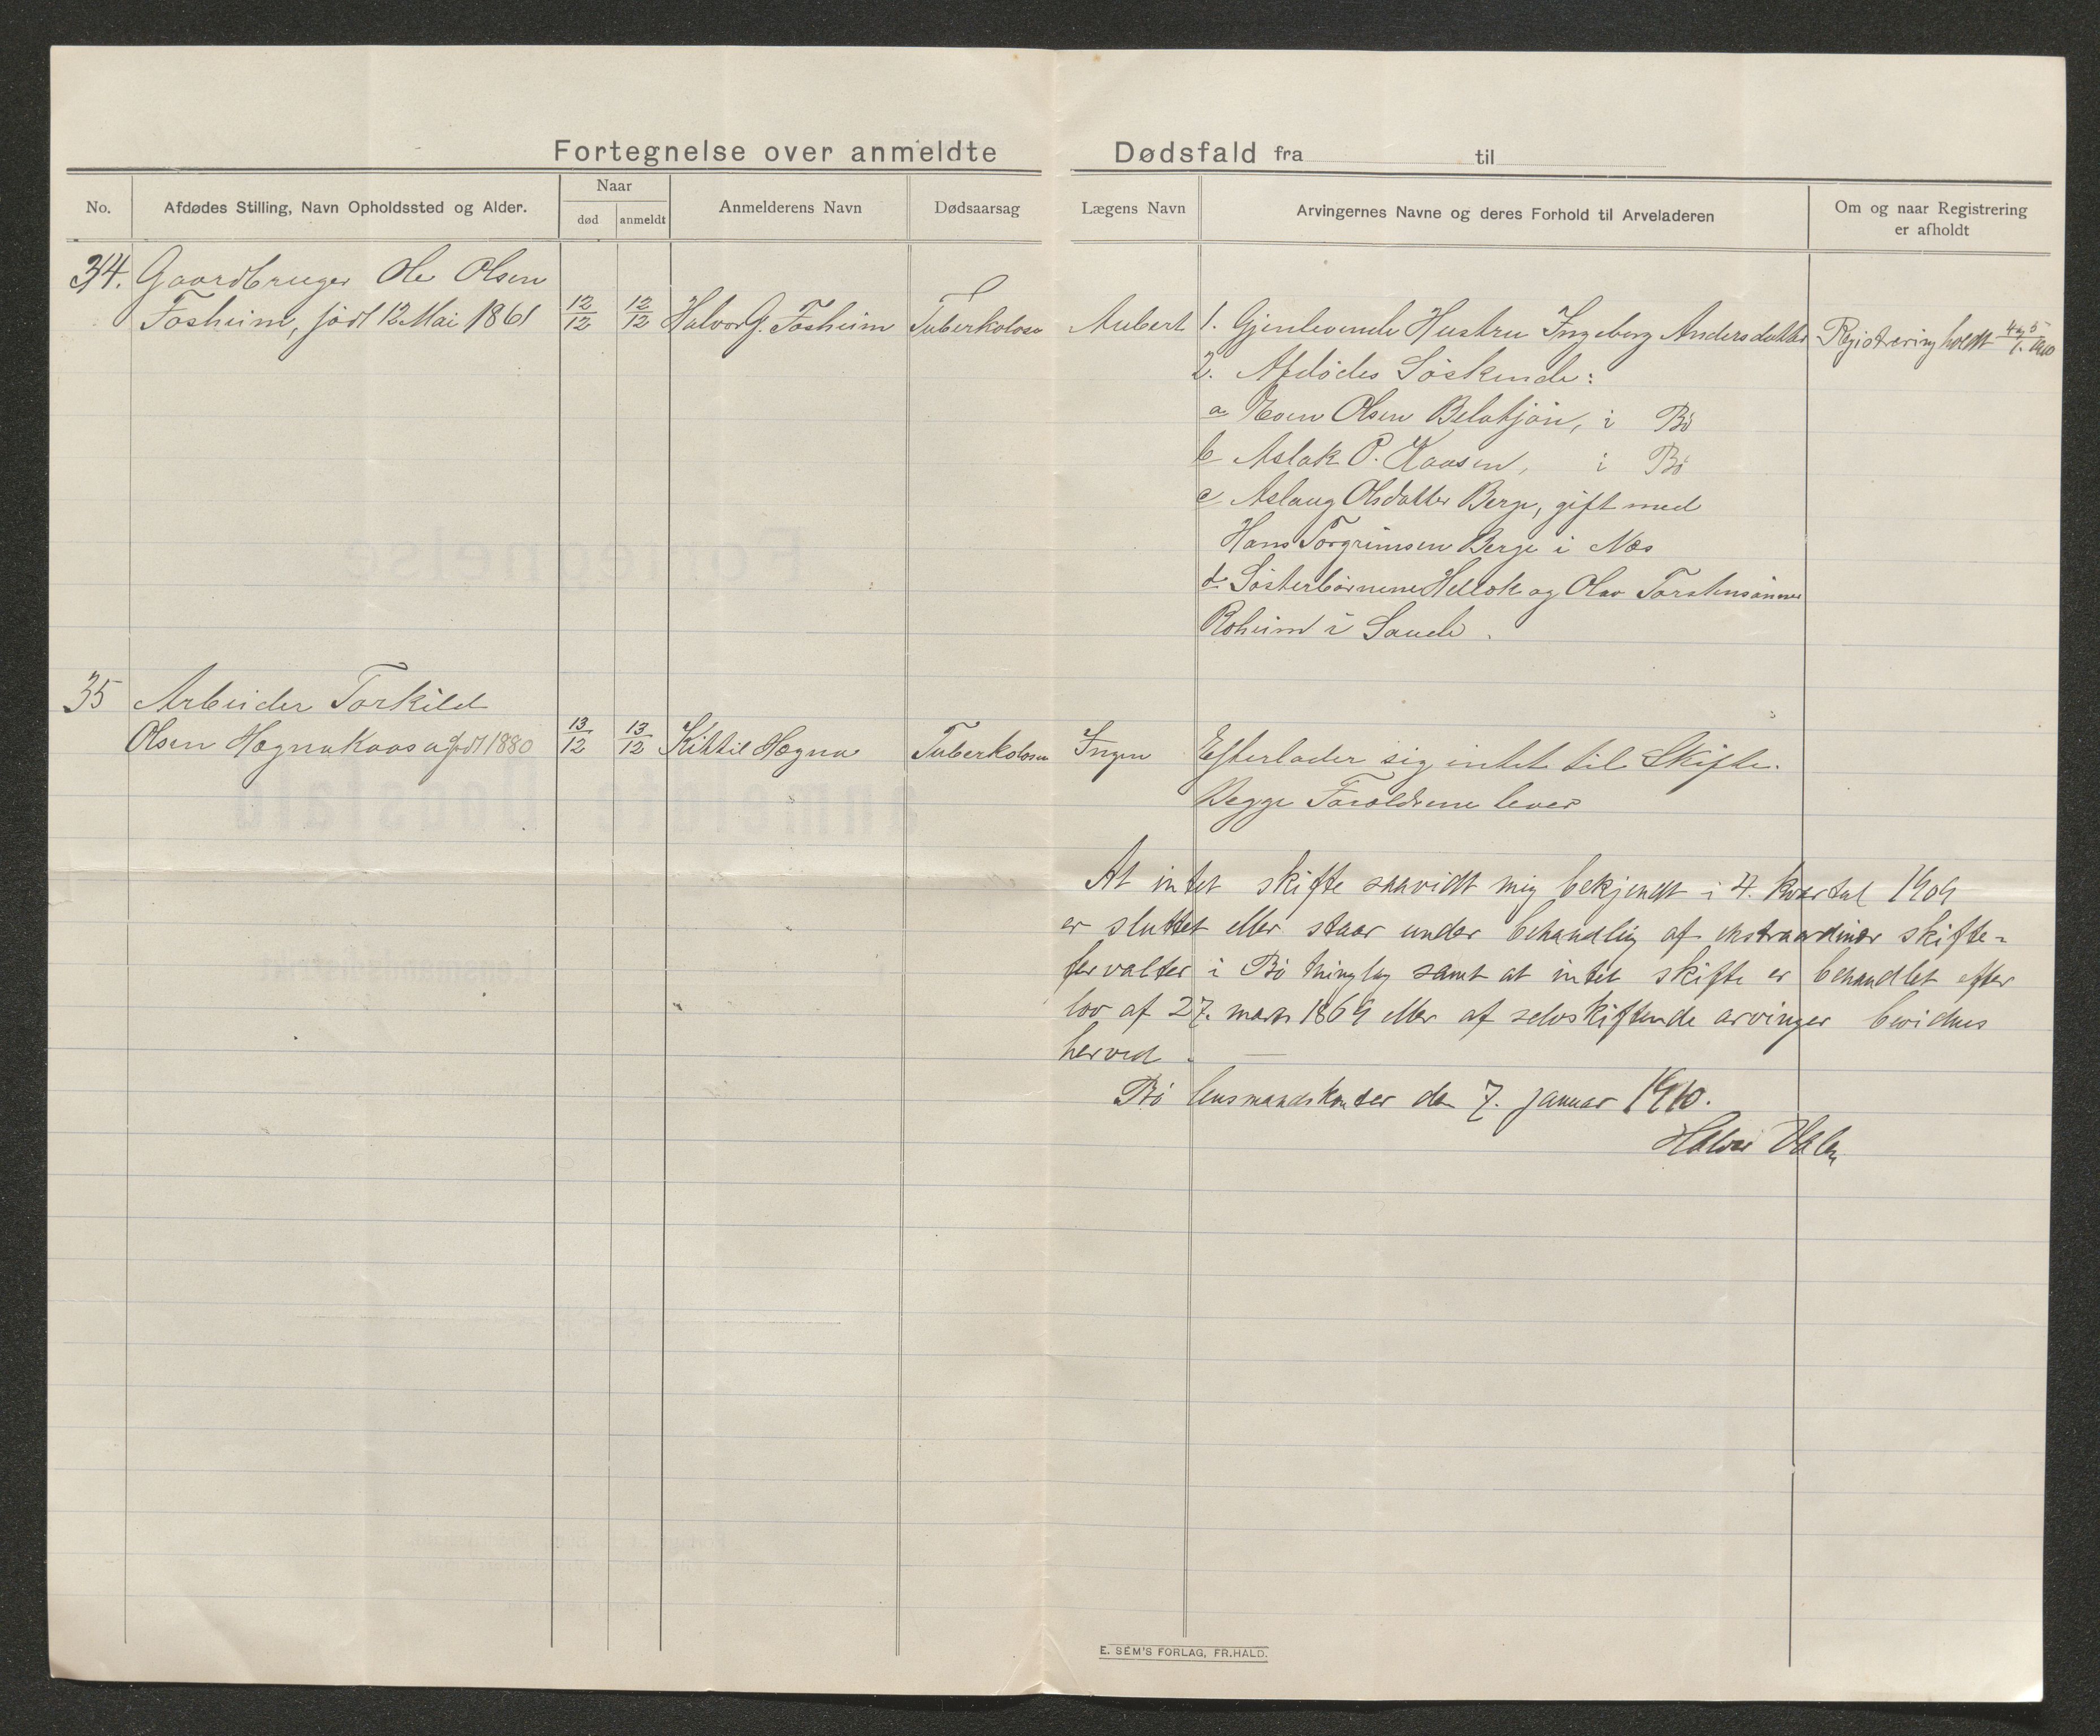 Fortegnelse over anmeldte Dødsfald fra til
No.
Afdødes Stilling, Navn Opholdssted og Alder.
Naar
død
anmeldt
Anmelderens Navn
Dødsaarsag
Lægens Navn
Arvingernes Navne og deres Forhold til Arveladeren
Om og naar Registrering
er afholdt
34. Gaardbruger Ole Olsen
Fosheim, født 12 Mai 1861
12/12
12/12
Halvor G. Fosheim
Tuberkolose
Aubert
1. Gjenlevende Hustru Ingeborg Andersdatter
Registrering holdt 4 og 5/1. 1910
2. Afdødes Søskende:
a Even Olsen Belatjøn, i Bø
b Aslak O. Kaasen, i Bø
c Aslaug Olsdatter Berge, gift med
Hans Torgrimsen Berge i Næs
d Søsterbørnene Hellek og Olav Torstensønner
Roheim i Saude.
35 Arbeider Torkild
Olsen Hognakaasa født 1880
13/12
13/12
Kittil Hogna
Tuberkolose
Ingen
Efterlader sig intet til Skifte.
Begge Forældrene lever
At intet skifte saavidt mig bekjendt i 4. kvartal 1909
er sluttet eller staar under behandling af ekstraordinær skifte-
forvalter i Bø thinglag samt at intet skifte er behandlet efter
lov af 27. mars 1869 eller af selvskiftende arvinger bevidnes
herved.
Bø lensmandskontor den 7. januar 1910.
Halvor
E. SEM'S FORLAG, FR.HALD.